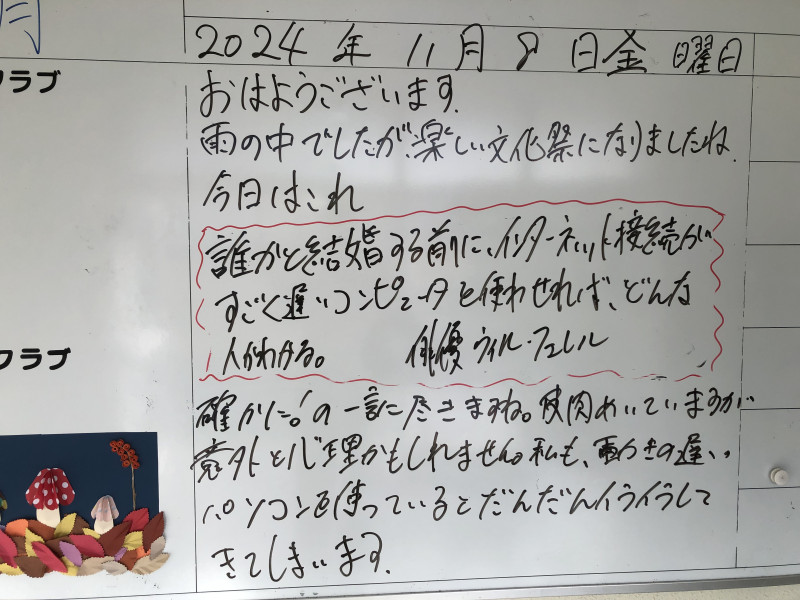 月
クラブ
クラブ
2024年 11月 8日金曜日
おはようございます.
雨の中でしたが、楽しい文化祭になりましたね.
今日はこれ
誰かと結婚する前に、インターネット接続が
すごく遅いコンピュータを使わせれば、どんな
人かわかる。 俳優 ウィル・フェレル
確かに!の一言に尽きますね。皮肉めいていますが
意外と心理かもしれません。私も、動きの遅い
パソコンを使っているとだんだんイライラして
きてしまいます.